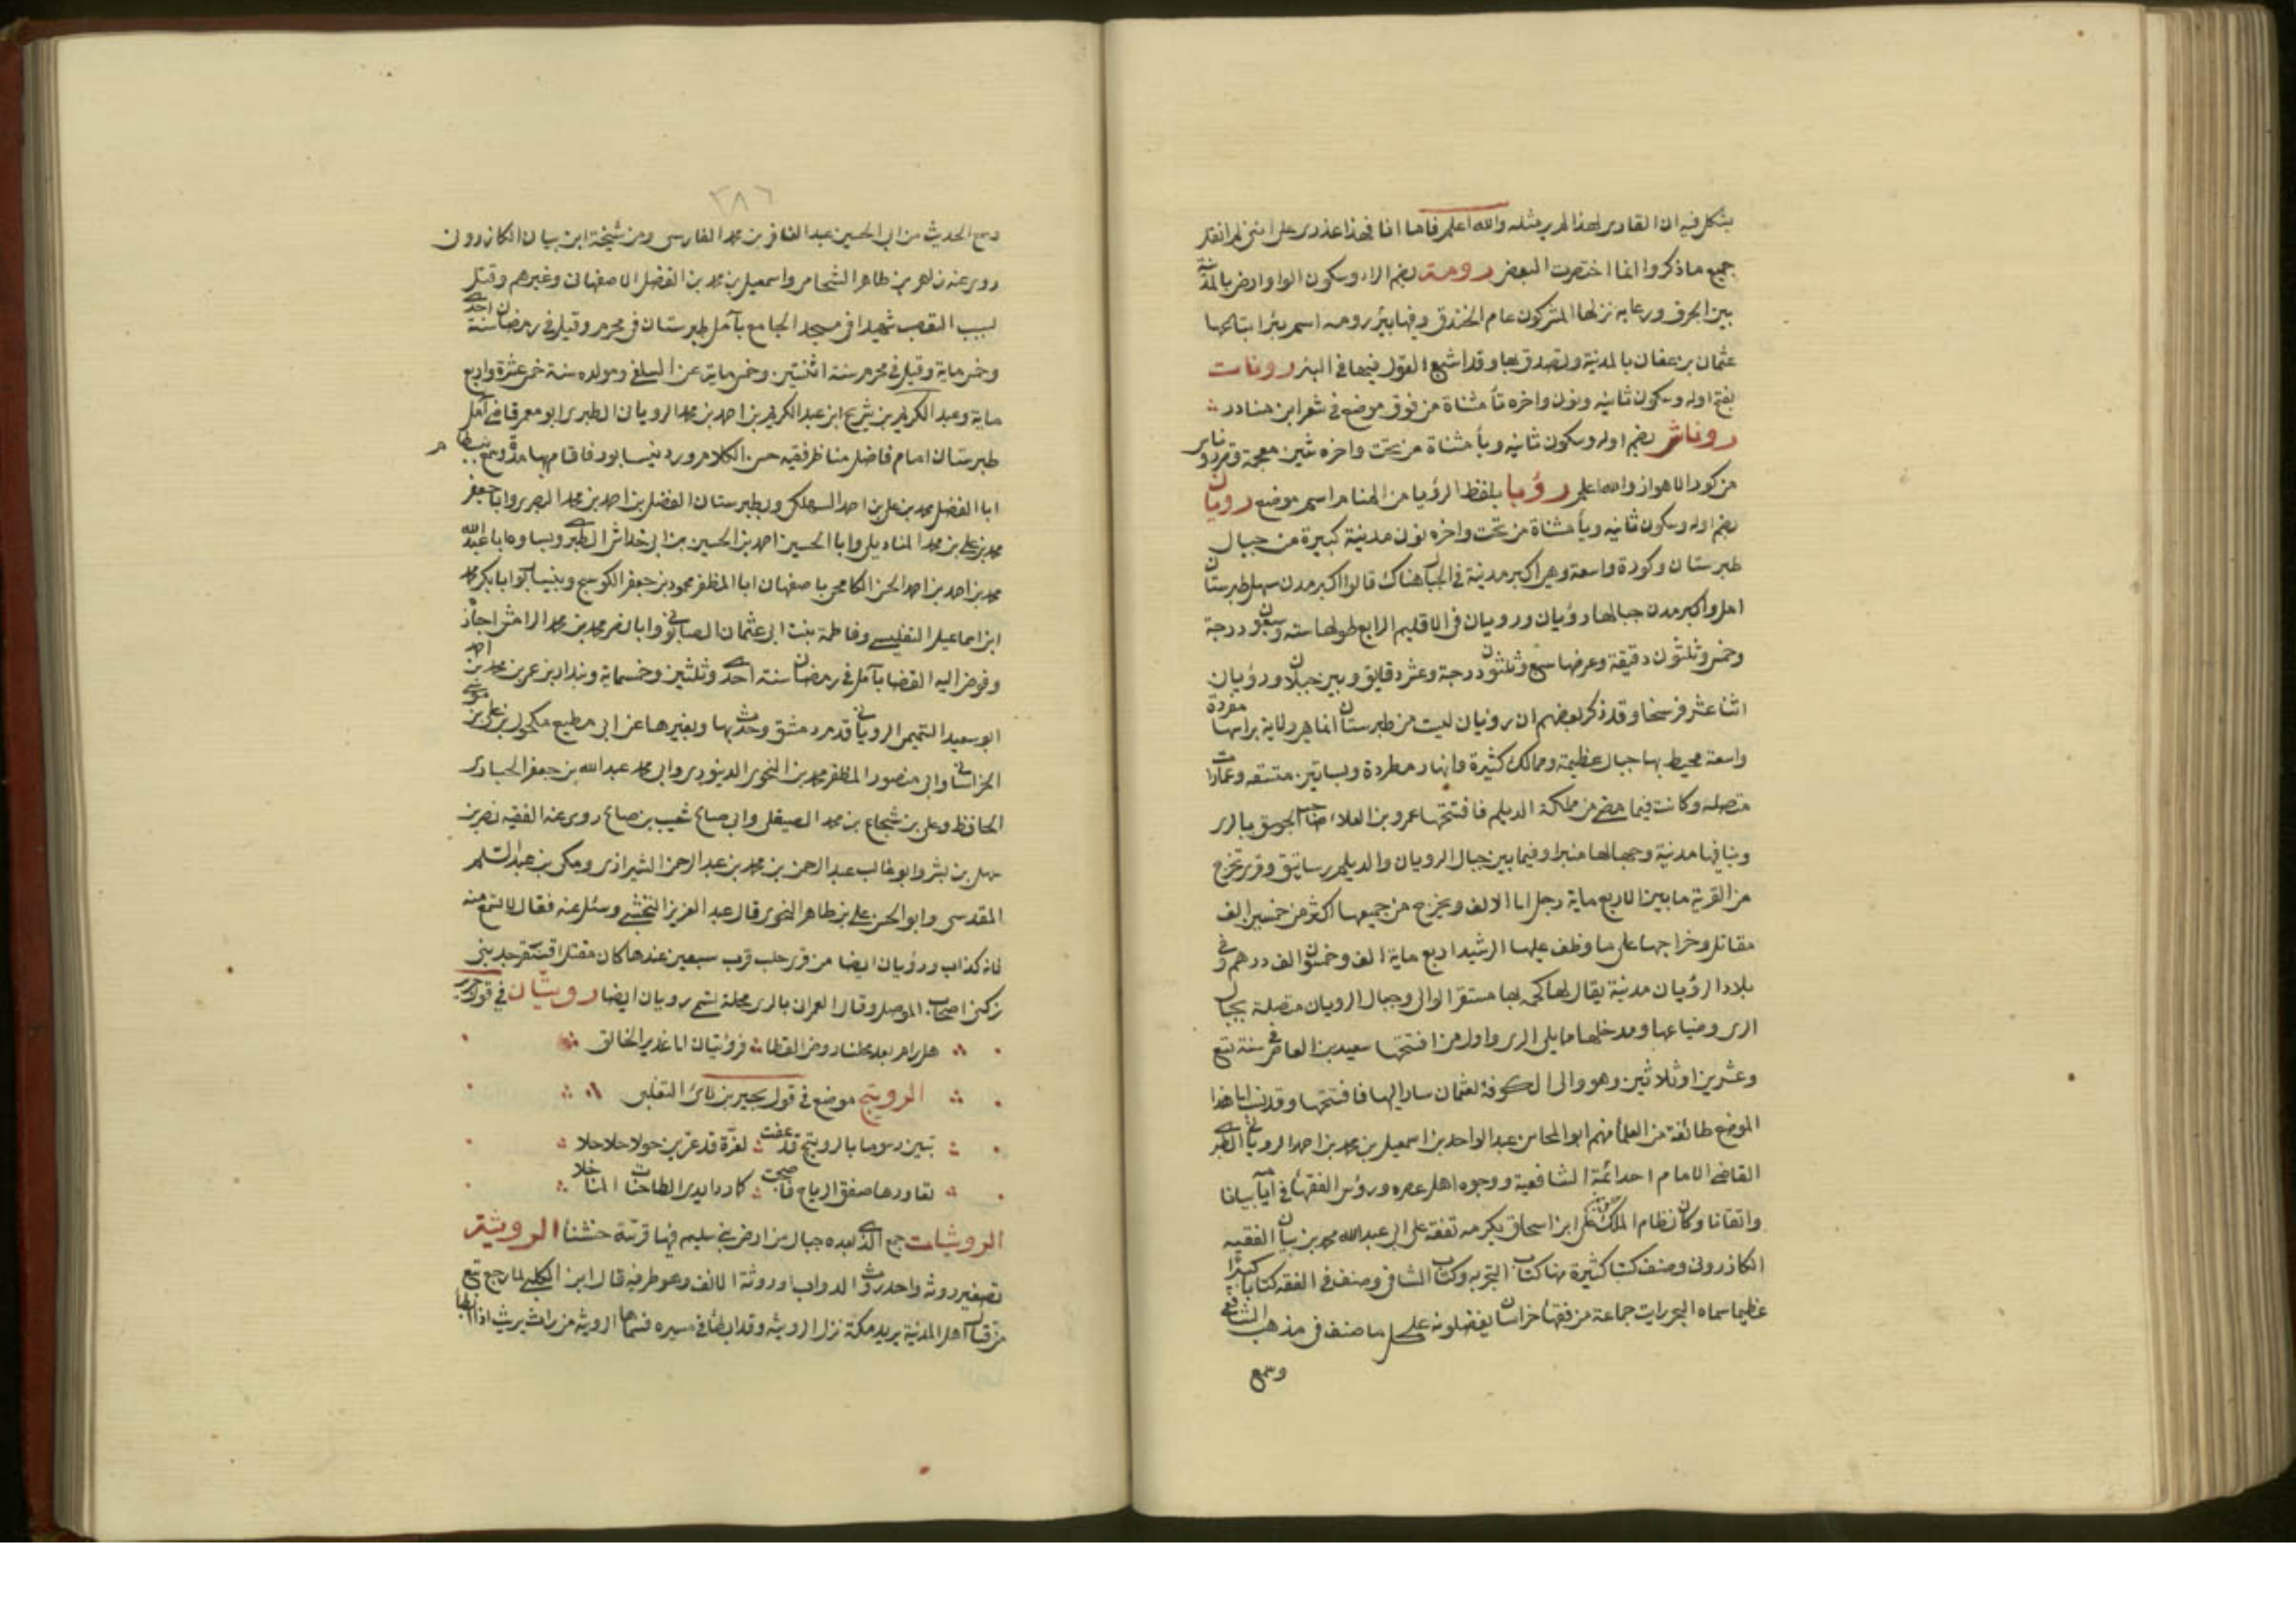 يشكل فيه ان القادر لهذا لم ير مثله والله اعلم فاما انا فهذا عذري على انني لم انقل
جميع ما ذكروا انما اختصرت البعض رومة بضم الراء وسكون الواو ارض بالمدينة
بين الجرف ورعابه نزلها المشركون عام الخندق وفيها بئر رومه اسم بئر ابتاعها
عثمان بن عفان بالمدنية وتصدق بها وقد اشبع القول فيها في البئر رونات
بفتح اوله وسكون ثانيه ونون واخره تأ مثناة من فوق موضع في شعر ابن منادر
روناش بضم اوله وسكون ثانيه ويأ مثناة من تحت واخره شين معجمة
من كور الاهواز والله اعلم رؤيا بلفظ الرؤيا من المنام اسم موضع رويان
بضم اوله وسكون ثانيه ويأ مثناة من تحت واخره نون مدينة كبيرة من جبال
طبرستان وكورة واسعة وهي اكبر مدينة في الجبال هناك قالوا اكبر مدن سهل طبرستان
امل واكبر مدن جبالها رؤيان ورويان في الاقليم الرابع طولها ست وسبعون درجة
وخمس وثلثون دقيقة وعرضها سبع وثلثون درجة وعشر دقايق وبين جيلان ورؤيان
اثنا عشر فرسخا وقد ذكر بعضهم ان رويان ليست من طبرستان انما هي ولاية براسها مفردة
واسعة محيط بها جبال عظيمة وممالك كثيرة وانهار مطردة وبساتين متسقه وعمارات
متصله وكانت فيما مضى من مملكة الديلم فافتتحها عمرو بن العلا صاحب الجوسق بالري
وبنا فيها مدنية وجعل لها منبرا وفيما بين جبال الرويان والديلم رساتيق وقرى تخرج
من القرية ما بين الاربع ماية رجل الى الالف ويخرج من جميعها اكثر من خمسين الف
مقاتل وخراجها على ما وظف عليها الرشيد اربع ماية الف وخمسون الف درهم وفي
بلاد الرؤيان مدنية يقال لها كجه بها مستقر الوالي وجبال الرويان متصلة بجبال
الري وضياعها ومدخلها مما يلي الري واول من افتتحها سعيد بن العاص في سنة تسع
وعشرين او ثلاثين وهو والى الكوفة لعثمان سار اليها فافتتحها وقد نسب الى هذا
الموضع طائفة من العلماء منهم ابو المحاسن عبد الواحد بن اسمعيل بن محمد بن احمد الروياني الطبري
القاضي الامام احد ائمة الشافعية ووجوه اهل عصره ورؤس الفقهاء في ايامه بيانا
واتقانا وكان نظام الملك علي ابن اسحاق يكرمه تفقه على ابي عبد الله محمد بن بيان الفقيه
الكازروني وصنف كتبا كثيرة منها كتاب التجربه وكتاب الشافي وصنف في الفقه كتابا كبيرا
عظيما سماه البحر رايت جماعة من فقهاء خراسان يفضلونه على كل ما صنف في مذهب الشافعي
وسمع
٣٨٦
وسمع الحديث من ابي الحسين عبد الغافر بن محمد الفارسي ومن شيخة ابن بيان الكازرون
روى عنه زاهر بن طاهر الشحامي واسمعيل بن محمد بن الفضل الاصفهاني وغيرهم وقتل
بسبب التعصب شهيدا في مسجد الجامع بآمل طبرستان في محرم وقيل في رمضان سنة احدى
وخمس ماية وقيل في محرم سنة اثنتين وخمس ماية عن السلفي ومولده سنة خمس عشرة واربع
ماية وعبد الكريم بن شريح ابن عبد الكريم بن احمد بن محمد الروياني الطبري ابو معمر قاضي آمل
طبرستان امام فاضل مناظر فقيه حسن الكلام ورد نيسابور فاقام بها مدة وسمع
ابا الفضل محمد بن علي بن احمد السهلكي وبطبرستان الفضل بن احمد بن محمد البصري وابا جعفر
محمد بن علي بن محمد المناديلي وابا الحسين احمد بن الحسين بن ابي خداش الطبري وبساوه ابا عبد الله
محمد بن احمد بن احمد الحسن الكامخي باصفهان ابا المظفر محمود بن جعفر الكوسج وبنيسابور ابا بكر محمد
ابن اسماعيل التفليسي وفاطمة بنت ابي عثمان الصابوني وابا نصر محمد بن محمد الرامش اجازة
وفوض اليه القضا بآمل في رمضان سنة احدى وثلثين وخسماية وبندار بن عمر بن محمد بن احمد
ابو سعيد التميمي الروياني قدم دمشق وحدث بها وبغيرها عن ابي مطيع مكحول بن علي بن موسى
الخراساني وابي منصور المظفر محمد بن النحوي الدينوري وابي محمد عبد الله بن جعفر الجبادي
الحافظ وعلي بن شجاع بن محمد الصيقلي وابي صالح شعيب بن صالح روى عنه الفقيه نصر بن
سهل بن بشر وابو غالب عبد الرحمن بن محمد بن عبد الرحمن الشيرازي ومكي بن عبد السلم
المقدسي وابو الحسن علي بن طاهر النحوي قال عبد العزيز النخشبي وسئل عنه فقال لا تسمع منه
فانه كذاب ورؤيان ايضا من قرى حلب قرب سبعين عندها كان مقتل اقسنقر جد بني
زنكي اصحاب الموصل وقال العمراني بالري محلة تسمى رويان ايضا رويتان في قول جرير
هل رام بعد محلنا روض القطا فرؤيتان الى غدير الخانق
الرويتج موضع في قول بجير بن لأي التغلبي
تبين رسوما بالرويتج قد عفت لعزة قد عرين حولا حلاحلا
تعاورها صفق الرياح فاصبحت كما رد ايدي الطاحنات المناخلا
الرويثات جمع الذي بعده جبال من ارض بني سليم فيها قنة خشنا الرويثة
تصغير روثه واحد روث الدواب او روثة الانف وهو طرفه قال ابن الكلبي لما رجع تبع
من قتال اهل المدنية يريد مكة نزل الرويثه وقد ابطأ في مسيره فسماها الرويثه من راث يريث اذا ابطأ